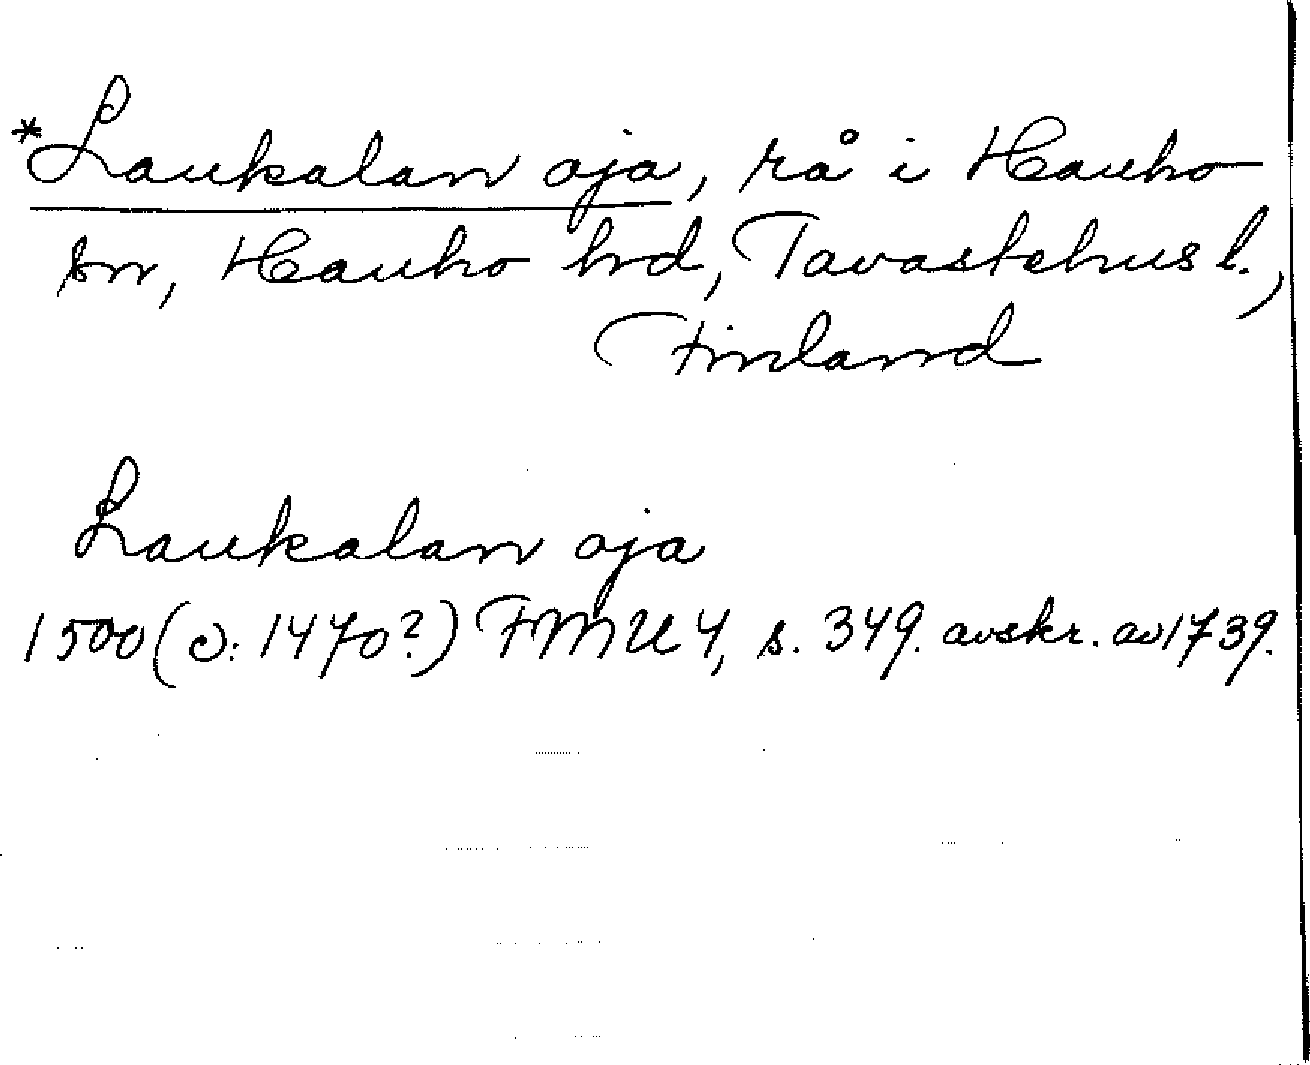 *Laukalan oja, rå i Hauho
sn, Hauho hd, Tavastehus l.,
Finland
Laukalan oja
1500 (ɔ: 1470?) FMU 4, s. 349. avskr. av 1739.